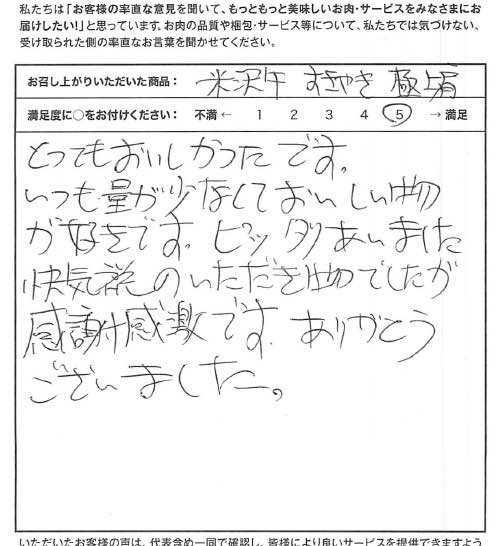 私たちは「お客様の率直な意見を聞いて、もっともっと美味しいお肉・サービスをみなさまにお
届けしたい!」と思っています。お肉の品質や梱包・サービス等について、私たちでは気づけない、
受け取られた側の率直なお言葉を聞かせてください。
お召し上がりいただいた商品： 米沢牛 すきやき 極上肩
満足度に○をお付けください： 不満 ← 1 2 3 4 5 → 満足
とってもおいしかったです。
いつも量が少なくておいしい物
が好きです。ピッタリあいました
快気祝のいただき物でしたが
感謝感激です。ありがとう
ございました。
いただいたお客様の声は、代表含め一同で確認し、皆様により良いサービスを提供できますよう